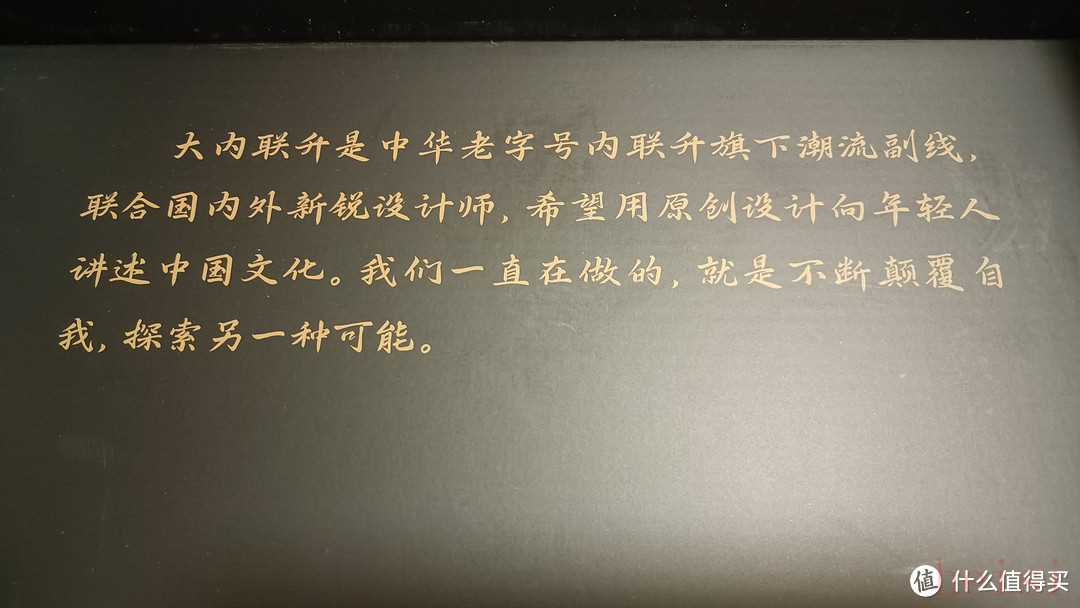 大内联升是中华老字号内联升旗下潮流副线，
联合国内外新锐设计师，希望用原创设计向年轻人
讲述中国文化。我们一直在做的，就是不断颠覆自
我，探索另一种可能。
值 什么值得买